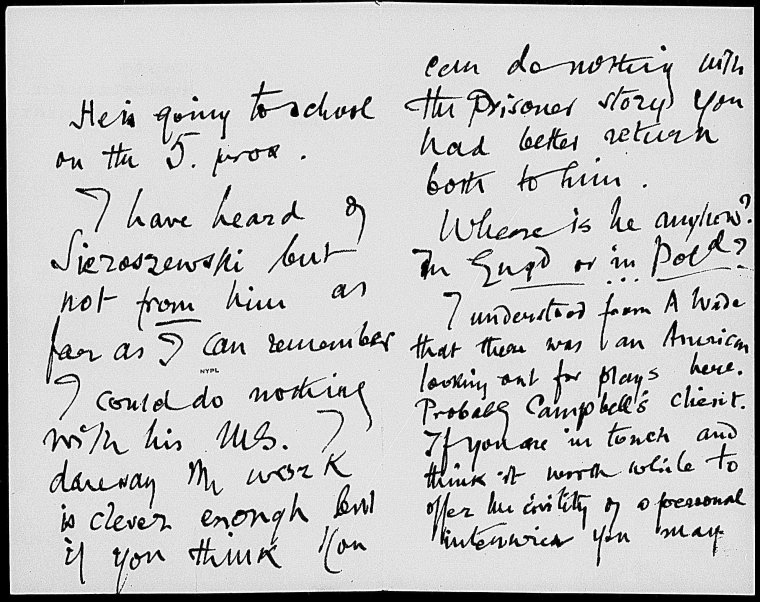 He is going to school
on the 5. prox.
I have heard of
Sieroszewski but
not from him as
far as I can remember
NYPL
I could do nothing
with his MS. I
daresay the work
is clever enough but
if you think you
can do nothing with
the Prisoner story you
had better return
both to him.
Where is he anyhow?
In Engd or in Pold?
I understood from A Wade
that there was an American
looking out for plays here.
Probably Campbell's client.
If you are in touch and
think it worth while to
offer him civility of a personal
interview you may